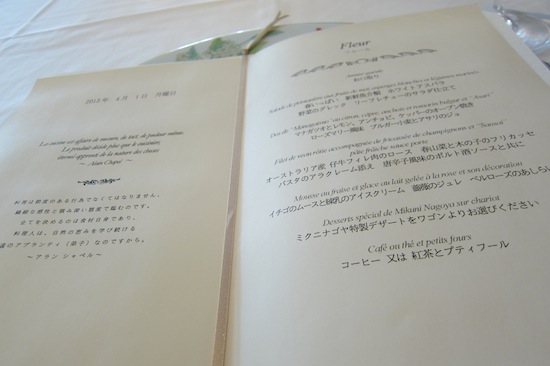 2013年 4月 1日 月曜日
La cuisine est affaire de mesure, de tact, de pudeur même.
Le produit décide plus que le cuisinier,
éternel apprenti de la nature des choses.
～ Alain Chapel ～
料理は節度のある行為でなくてはなりません。
繊細な感性と慎み深い態度で臨むのです。
全てを決めるのは食材自身であり、
料理人は、自然の恵みを学び続ける
のアプランティ（弟子）なのですから。
～アラン シャペル～
Fleur
フルール
Amuse
春いっぱい 新鮮魚介類 ホワイトアスパラ
野菜のグレック リーフレチューのサラダ仕立て
Dos de "Managatsuo" au citron, câpre, anchois et romarin bulgur et "Asari"
マナガツオとレモン、アンチョビ、ケッパーのオーブン焼き
ローズマリー風味 ブルガー小麦とアサリのジュ
Filet de veau rôtie accompagnée de fricassée de champignons et "Sansai"
pâte fraîche sauce porto
オーストラリア産 仔牛フィレ肉のロース 春山菜と木の子のフリカッセ
パスタのアラクレーム添え 唐辛子風味のポルト酒ソースと共に
Mousse au fraise et glace au lait gelée à la rose et son décoration
イチゴのムースと練乳のアイスクリーム 薔薇のジュレ ベルローズのあしらい
Desserts spécial de Mikuni Nagoya sur chariot
ミクニナゴヤ特製デザートをワゴンよりお選びください
Café ou thé et petits fours
コーヒー 又は 紅茶とプティフール